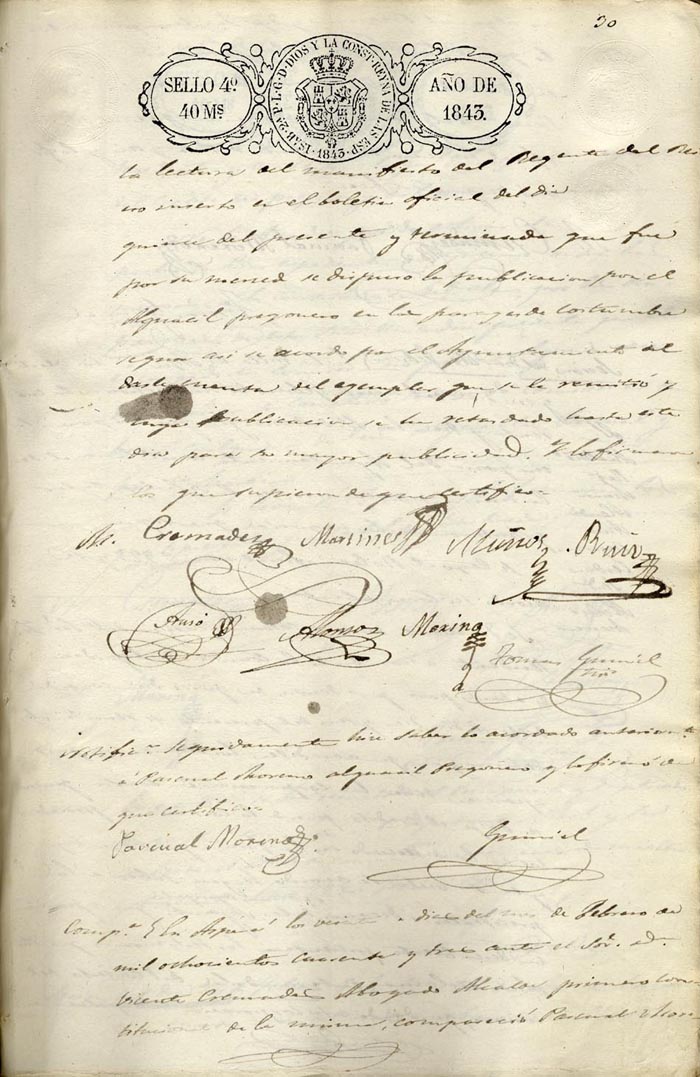 30
SELLO 4º
40 Ms
ISAB. 2ª P. L. G. D. DIOS Y LA CONST. REYNA DE LAS ESP.
1843
AÑO DE
1843.
la lectura del manifiesto del Regente del Rei
no inserto en el boletin oficial del dia
quince del presente y terminada que fué
por su merced se dispuso la publicacion por el
Alguacil pregonero en los parages de costumbre
segun asi se acordo por el Ayuntamiento al
darle cuenta del ejemplar que se le remitió y
cuya publicacion se ha retardado hasta este
dia para su mayor publicidad. Y lo firmaron
los que supieron de que certifico
Cremades Martines Muños Ruiz
Ausó Alonso Merina
Tomas Gumiel
Notific.n Seguidamente hice saber lo acordado anteriormte
á Pascual Moreno alguacil Pregonero y lo firmó de
que certifico
Pascual Moreno
Gumiel
Comp.a En Aspe á los veinte y dias del mes de Febrero de
mil ochocientos cuarenta y tres ante el Sor. D.
Vicente Cremades Abogado Alcalde primero cons
titucional de la misma, compareció Pascual More